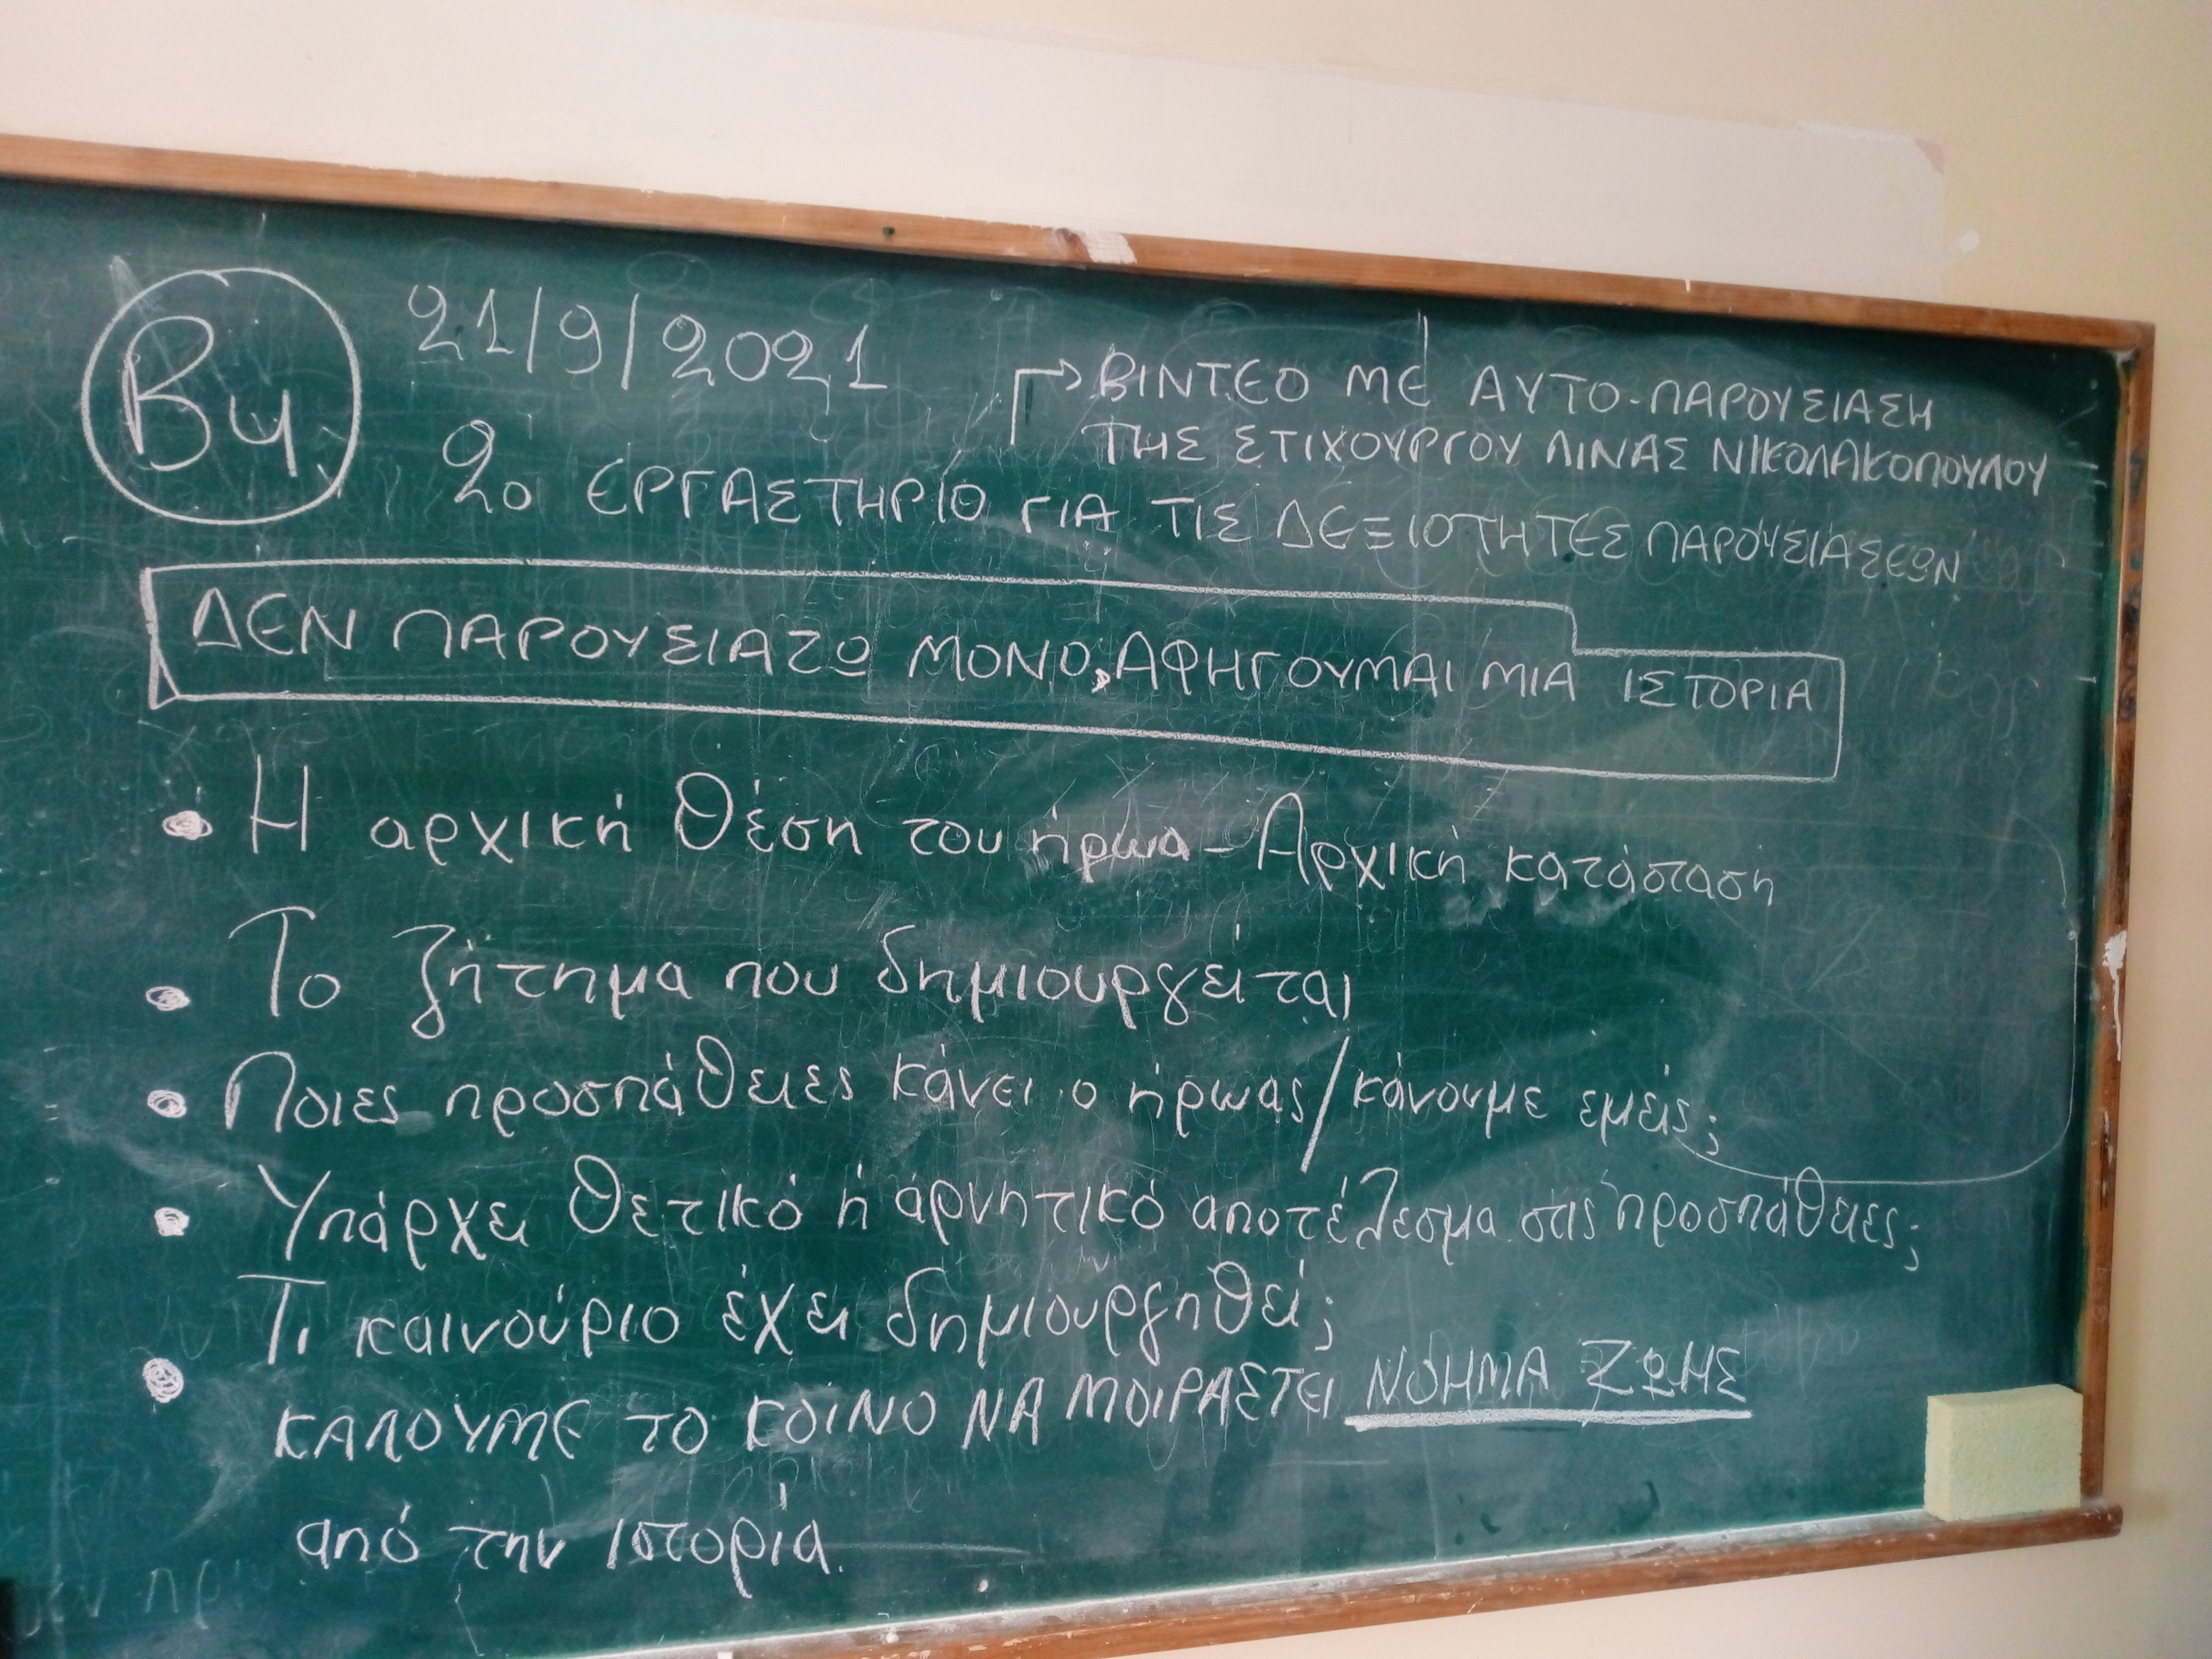 Β4
21/9/2021
ΒΙΝΤΕΟ ΜΕ ΑΥΤΟ-ΠΑΡΟΥΣΙΑΣΗ
ΤΗΣ ΣΤΙΧΟΥΡΓΟΥ ΛΙΝΑΣ ΝΙΚΟΛΑΚΟΠΟΥΛΟΥ
2ο ΕΡΓΑΣΤΗΡΙΟ ΓΙΑ ΤΙΣ ΔΕΞΙΟΤΗΤΕΣ ΠΑΡΟΥΣΙΑΣΕΩΝ
ΔΕΝ ΠΑΡΟΥΣΙΑΖΩ ΜΟΝΟ, ΑΦΗΓΟΥΜΑΙ ΜΙΑ ΙΣΤΟΡΙΑ
• Η αρχική θέση του ήρωα - Αρχική κατάσταση
• Το ζήτημα που δημιουργείται
• Ποιες προσπάθειες κάνει ο ήρωας/κάνουμε εμείς;
• Υπάρχει θετικό ή αρνητικό αποτέλεσμα στις προσπάθειες;
Τι καινούριο έχει δημιουργηθεί;
• ΚΑΛΟΥΜΕ ΤΟ ΚΟΙΝΟ ΝΑ ΜΟΙΡΑΣΤΕΙ ΝΟΗΜΑ ΖΩΗΣ
από την ιστορία.